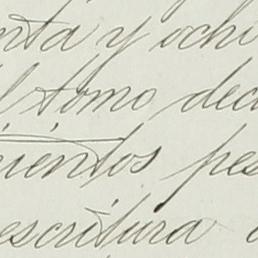 nta y ochi
l tomo dec
cientos pes
escritura